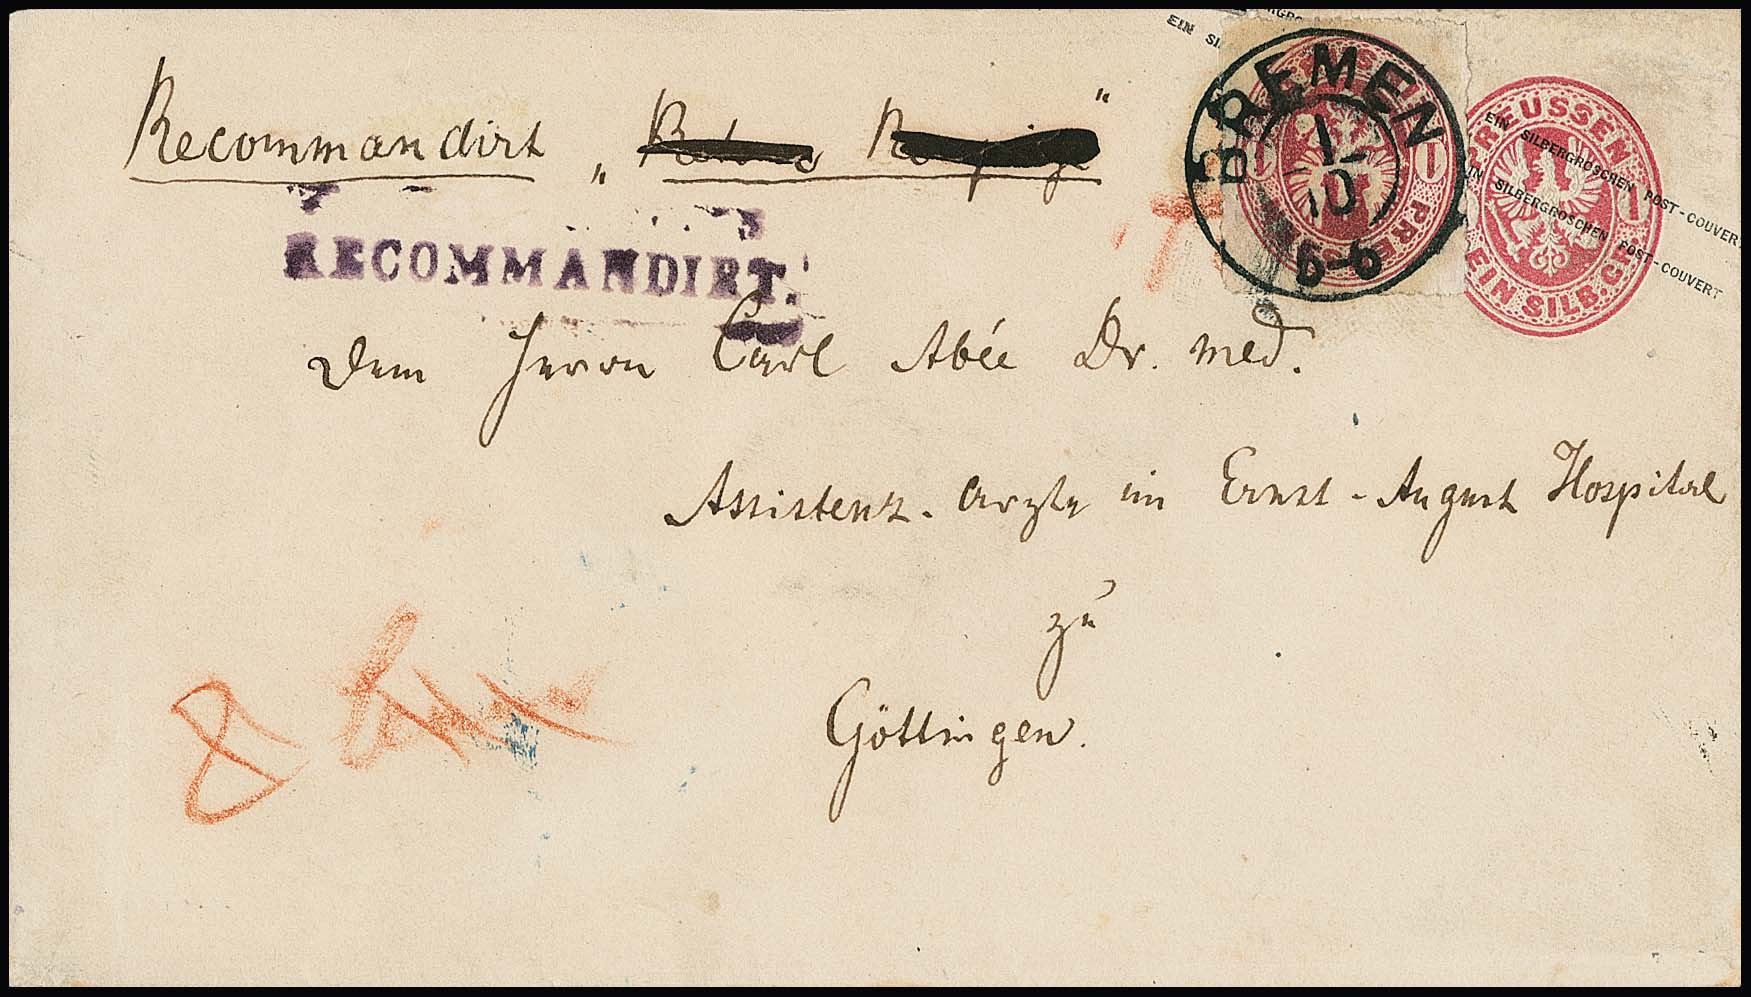 Recommandirt „ “
RECOMMANDIRT.
Dem Herrn Carl Abée Dr. med.
Assistenz-arzte im Ernst-August Hospital
zu
Göttingen.
BREMEN
1
10
5-6
PREUSSEN
1
EIN SILB. GR.
EIN SILBERGROSCHEN POST-COUVERT
EIN SILBERGROSCHEN POST-COUVERT
8